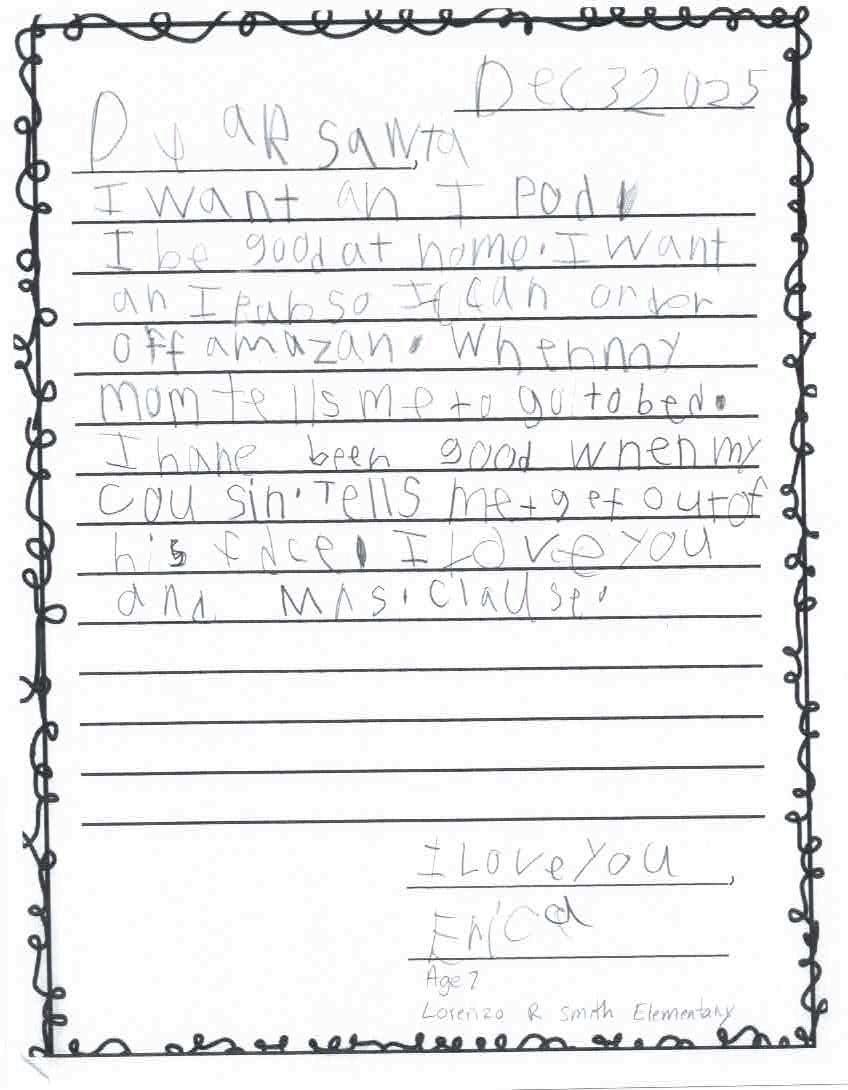 Dec 3 2025
DeaR Santa,
I want an I Pod.
I be good at home. I want
an I pab so I can order
off amazan. When my
mom tells me to go to bed.
I hane been good when my
cousin. Tells me t get out of
his face. I Love you
and Mrs. Clause.
I Love You,
Erica
Age 7
Lorenzo R Smith Elementary